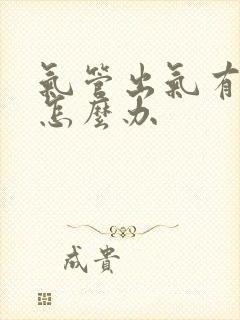 氣管出氣有
怎麼办
成貴